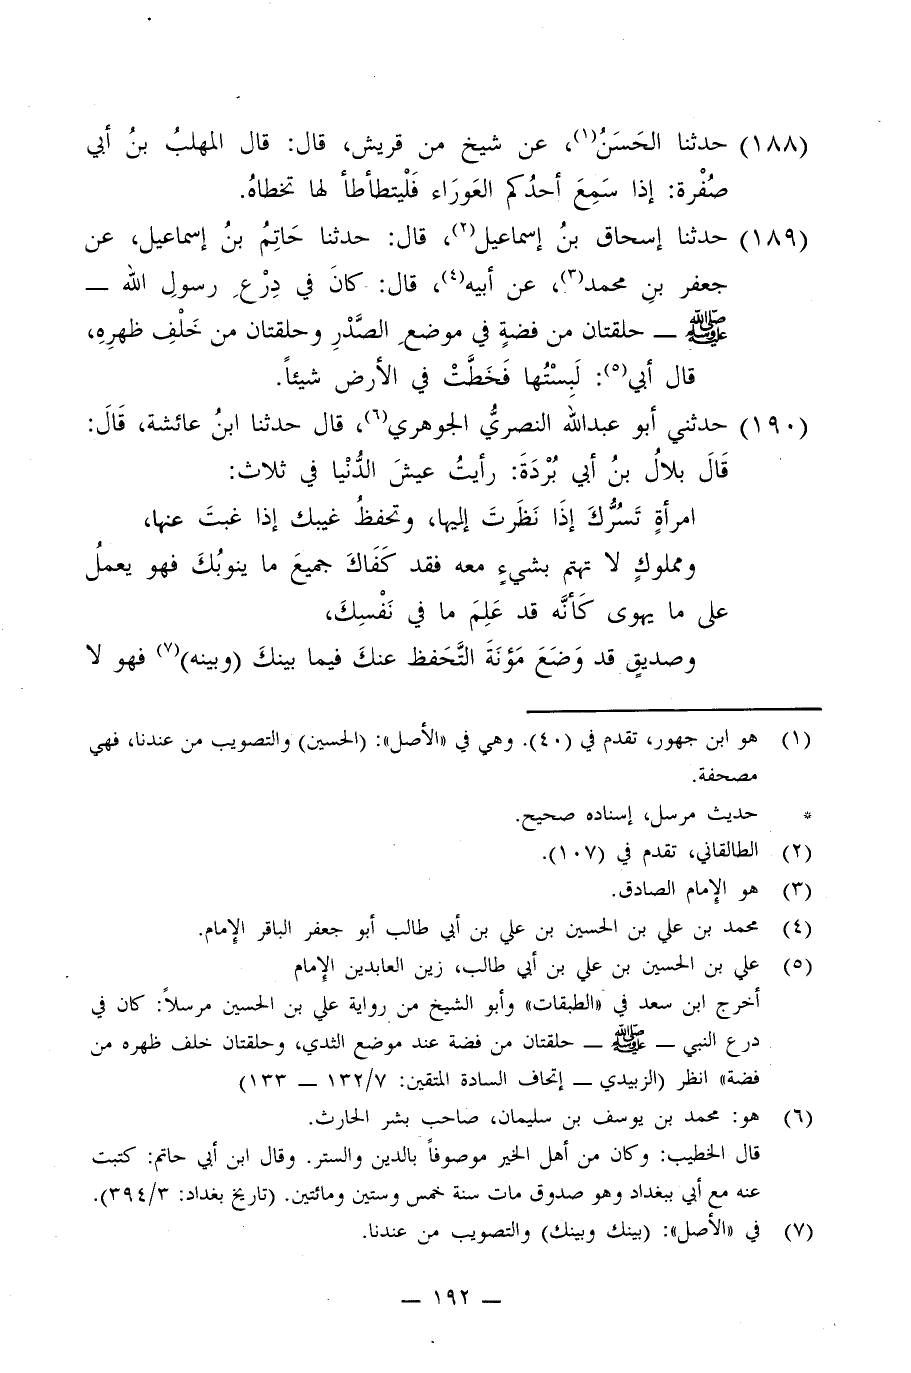 (١٨٨) حدثنا الحَسَنُ(١)، عن شيخ من قريش، قال: قال المهلبُ بنُ أبي
صُفْرة: إذا سَمِعَ أحدُكم العَورَاء فَلْيتطأطأ لها تخطاهُ.
(١٨٩) حدثنا إسحاق بنُ إسماعيل(٢)، قال: حدثنا حَاتِمُ بنُ إسماعيل، عن
جعفر بنِ محمد(٣)، عن أبيه(٤)، قال: كانَ في دِرْعِ رسولِ الله —
ﷺ — حلقتان من فضةٍ في موضعِ الصَّدْرِ وحلقتان من خَلْفِ ظهرِهِ،
قال أبي(٥): لَبِسْتُها فَخَطَّتْ في الأرض شيئاً.
(١٩٠) حدثني أبو عبدالله النصريُّ الجوهري(٦)، قال حدثنا ابنُ عائشة، قَالَ:
قَالَ بلالُ بنُ أبي بُرْدَةَ: رأيتُ عيشَ الدُّنْيا في ثلاث:
امرأةٍ تَسُرُّكَ إذَا نَظَرتَ إليها، وتحفظُ غيبك إذا غبتَ عنها،
ومملوكٍ لا تهتم بشيءٍ معه فقد كَفَاكَ جميعَ ما ينوبُكَ فهو يعملُ
على ما يهوى كَأنَّه قد عَلِمَ ما في نَفْسِكَ،
وصديقٍ قد وَضَعَ مَؤنَةَ التَّحَفظ عنكَ فيما بينكَ (وبينه)(٧) فهو لا
(١) هو ابن جهور، تقدم في (٤٠). وهي في «الأصل»: (الحسين) والتصويب من عندنا، فهي
مصحفة.
* حديث مرسل، إسناده صحيح.
(٢) الطالقاني، تقدم في (١٠٧).
(٣) هو الإمام الصادق.
(٤) محمد بن علي بن الحسين بن علي بن أبي طالب أبو جعفر الباقر الإمام.
(٥) علي بن الحسين بن علي بن أبي طالب، زين العابدين الإمام
أخرج ابن سعد في «الطبقات» وأبو الشيخ من رواية علي بن الحسين مرسلاً: كان في
درع النبي — ﷺ — حلقتان من فضة عند موضع الثدي، وحلقتان خلف ظهره من
فضة» انظر (الزبيدي — إتحاف السادة المتقين: ١٣٢/٧ — ١٣٣)
(٦) هو: محمد بن يوسف بن سليمان، صاحب بشر الحارث.
قال الخطيب: وكان من أهل الخير موصوفاً بالدين والستر. وقال ابن أبي حاتم: كتبت
عنه مع أبي ببغداد وهو صدوق مات سنة خمس وستين ومائتين. (تاريخ بغداد: ٣٩٤/٣).
(٧) في «الأصل»: (بينك وبينك) والتصويب من عندنا.
— ١٩٢ —